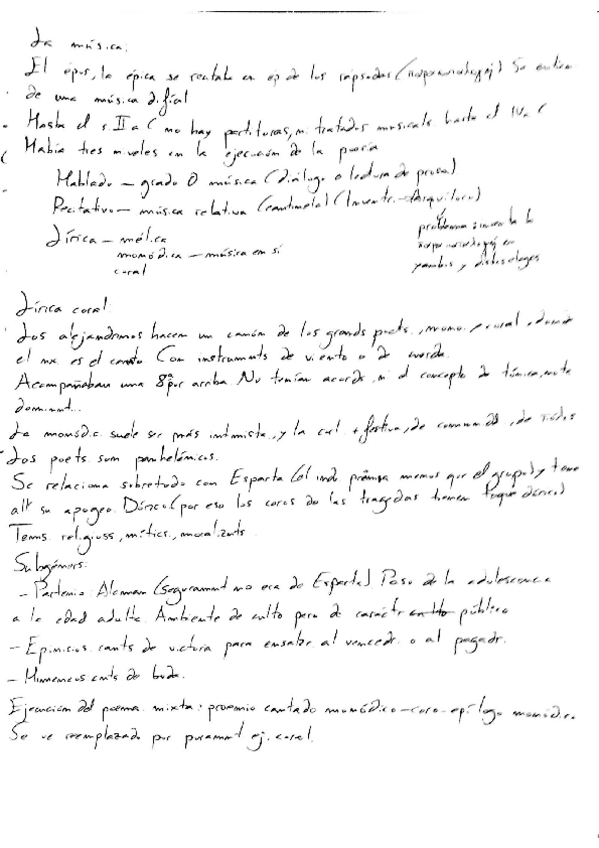 La música:
El epos, la épica se recitaba en ep de los rapsodas ( ) Se
de una música difícil
Hasta el s. II a C no hay partituras, ni tratados musicals hasta el IV a C
Había tres niveles en la ejecución de la poesía
Hablado – grado 0 música (diálogo o lectura de prosa)
Recitativo – música relativa (cantinela) (Invent. – Arquíloco)
problema: inventa la
Lírica – mélica
en
monódica – música en sí
yambos y dísticos elegs
coral
Lírica coral
Los alejandrinos hacen un canón de los grands poets, mono. y coral, donde
el mx. es el canto Con instruments de viento o de cuerda.
Acompañaban una 8ª por arriba No tenían acords, ni el concepto de tónica, nota
dominant.
La monódic. suele ser más intimista, y la coral + festiva, de comunidd, de todos
Los poets. son panhelénicos.
Se relaciona sobretodo con Esparta (el ind. prima menos que el grupo) y tuvo
allí su apogeo. Dórico (por eso los coros de las tragedias tienen toque dórico)
Tems religioss, mítics, moralizants.
Subgéners:
– Partenio: Alcman (segurament no era de Esparta) Paso de la adolescencia
a la edad adulta. Ambiente de culto pero de caráctr público
– Epinicios cants de victoria para ensalzr al vencedr o al pagadr.
– Himeneos cnts de boda.
Ejecución del poema mixta: proemio cantado monódico – coro – epílogo monódic.
Se ve reemplazado por purament ej. coral.